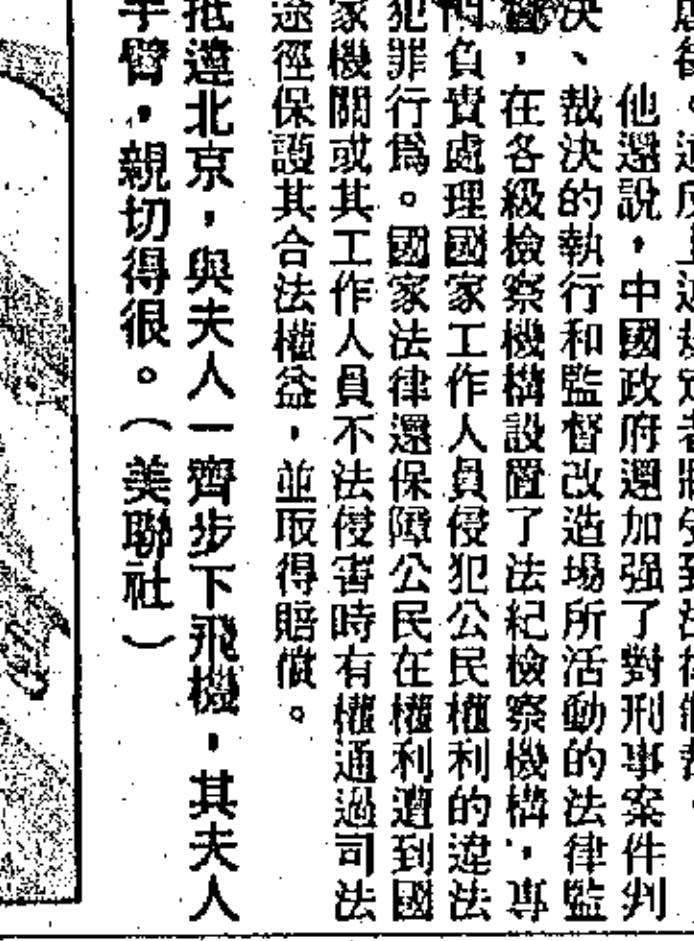 他還說，中國政府還加强了對刑事案件判
決、裁決的執行和監督改造場所活動的法律監
，在各級檢察機構設置了法紀檢察機構，專
負責處理國家工作人員侵犯公民權利的違法
犯罪行爲。國家法律還保障公民在權利遭到國
家機關或其工作人員不法侵害時有權通過司法
途徑保護其合法權益，並取得賠償。
抵達北京，與夫人一齊步下飛機，其夫人
手臂，親切得很。（美聯社）